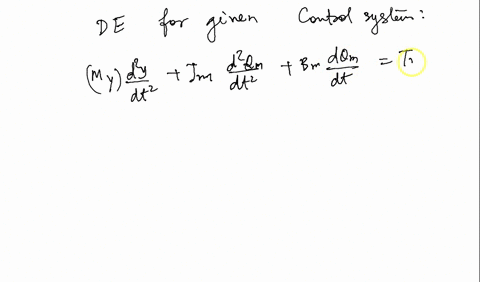 DE for given Control system:
(My) d²y/dt² + Jm d²θm/dt² + Bm dθm/dt = T